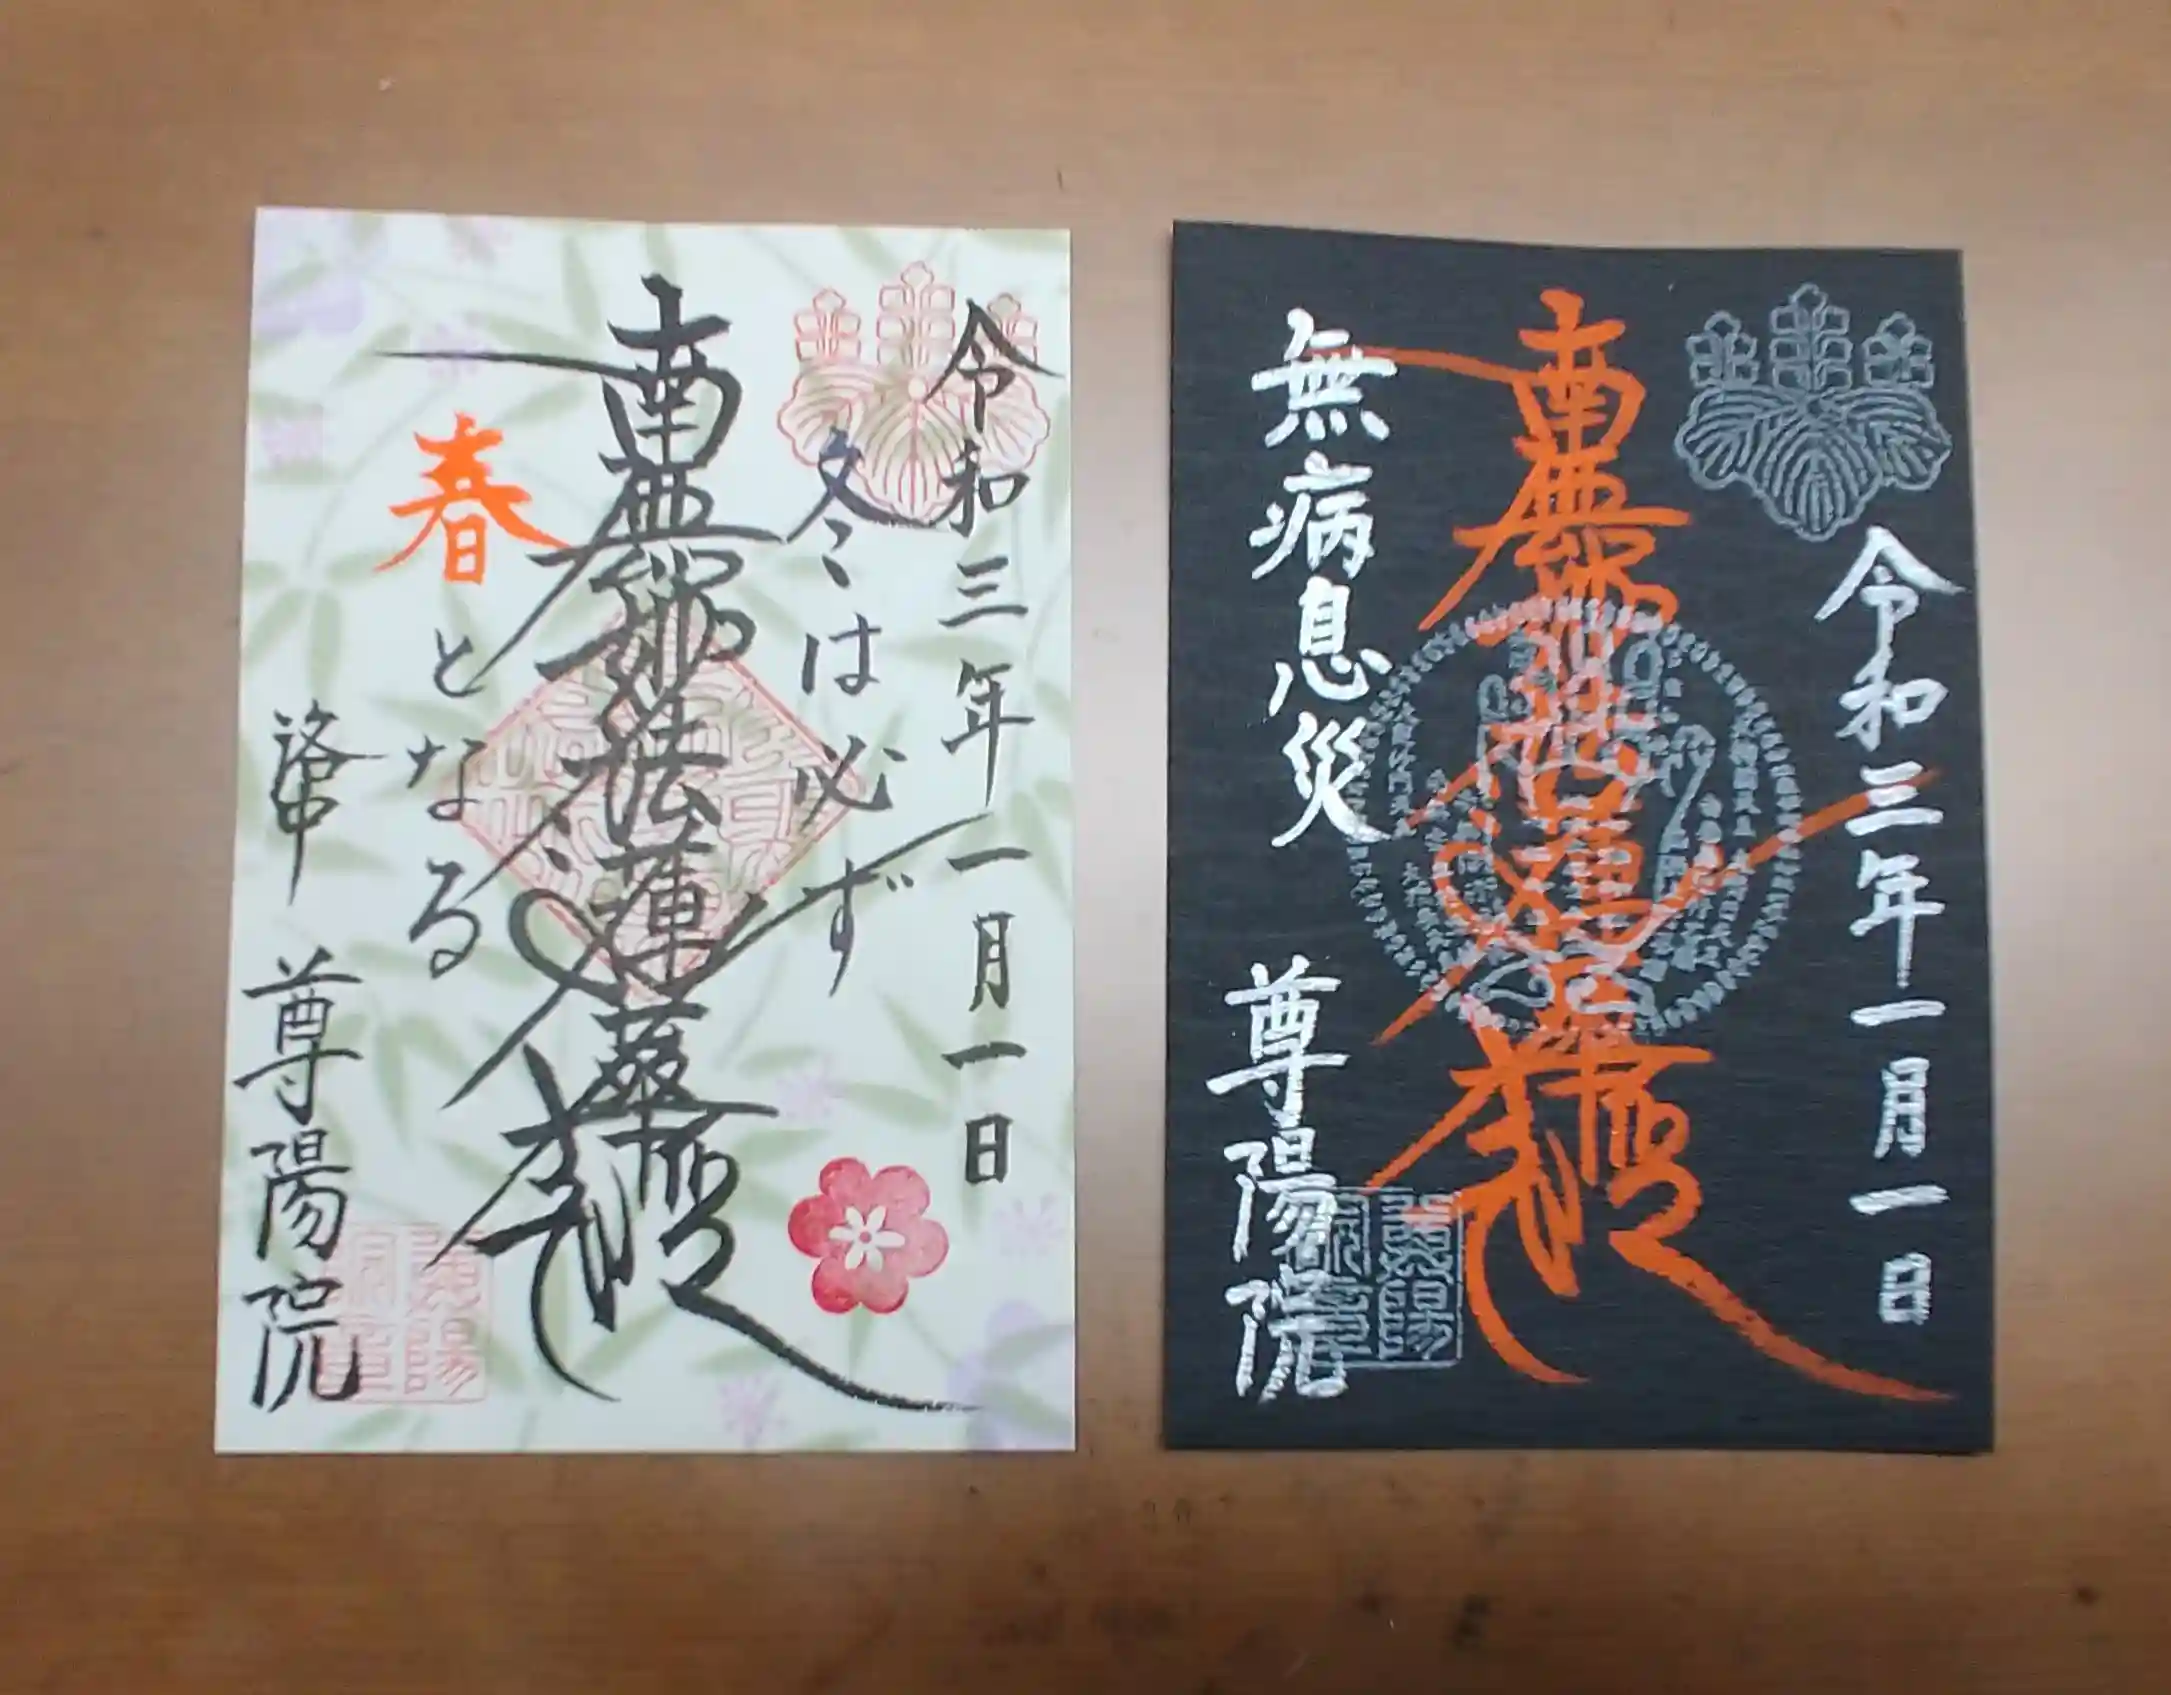 令和三年一月一日
冬は必ず
南無妙法蓮華経
春となる
洛中 尊陽院
令和三年一月一日
南無妙法蓮華経
無病息災
尊陽院